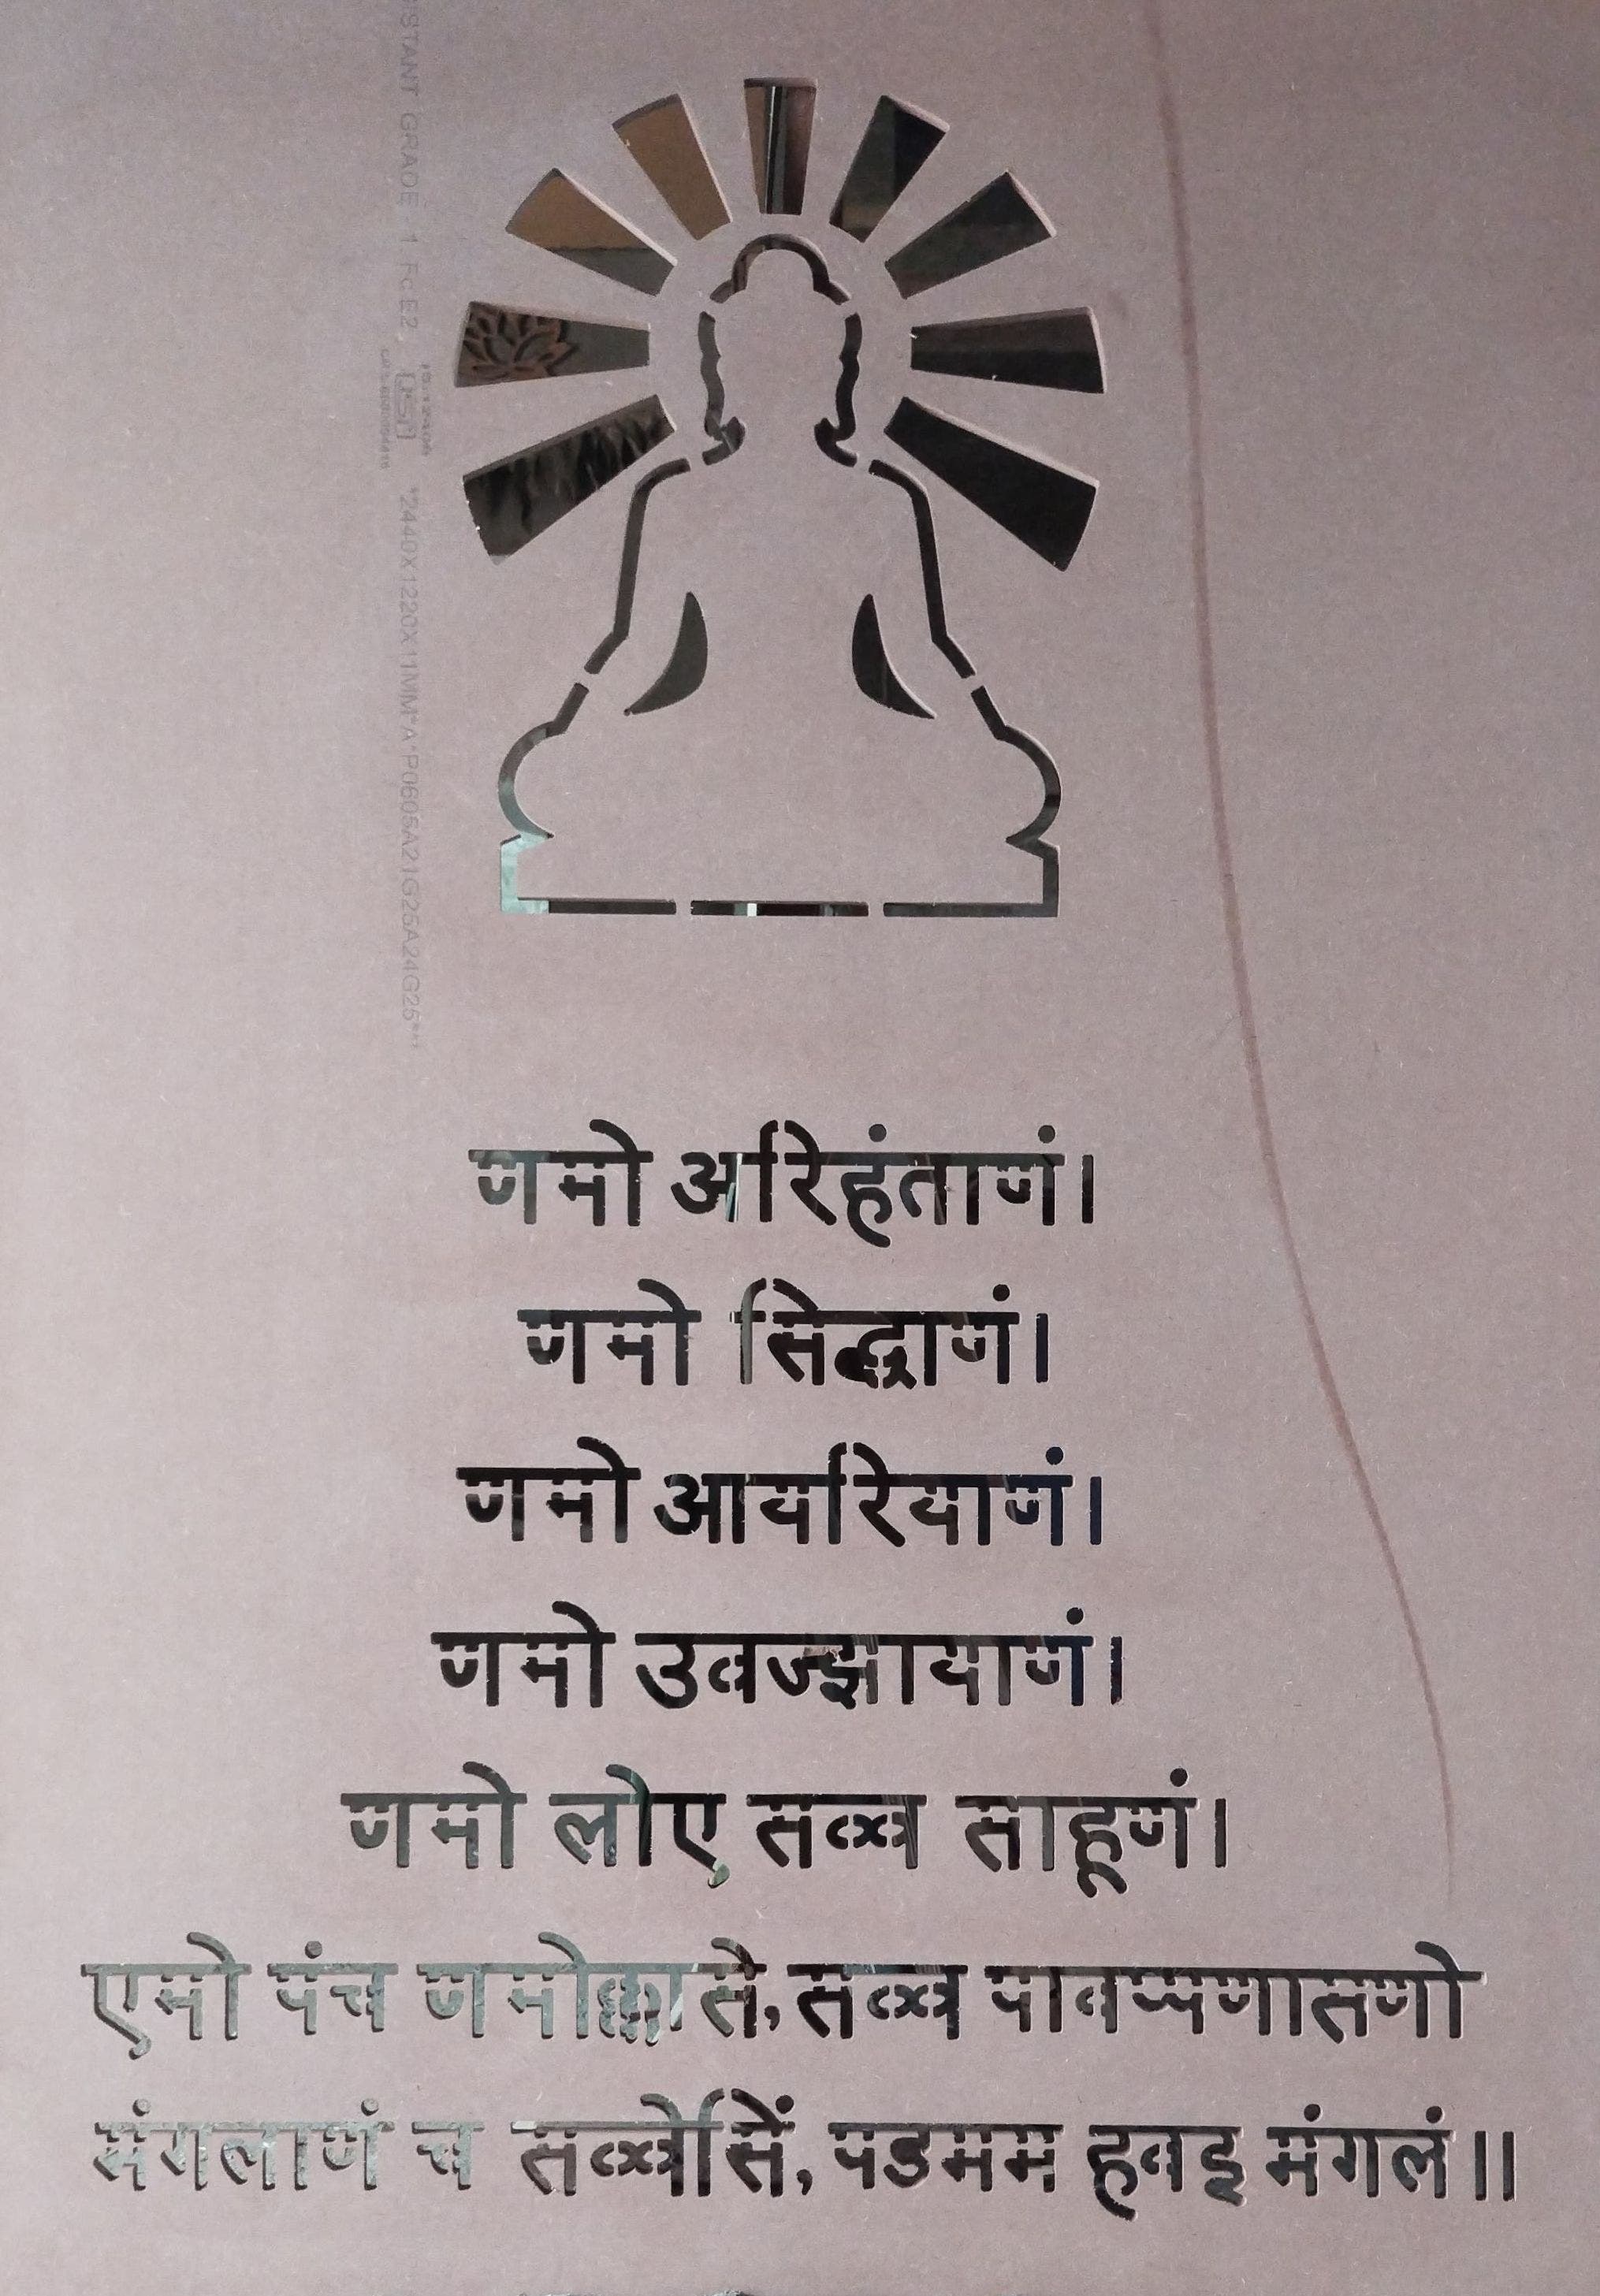 णमो अरिहंताणं।
णमो सिद्धाणं।
णमो आयरियाणं।
णमो उवज्झायाणं।
णमो लोए सव्व साहूणं।
एमो पंच णमोक्कासे, सव्व पावप्पणासणो
मंगलाणं च सव्वेसिं, पडमम हवइ मंगलं॥
STANT GRADE 1 Fc E2
*2440X1220X11MM*A*P0605A21G25A24G25***